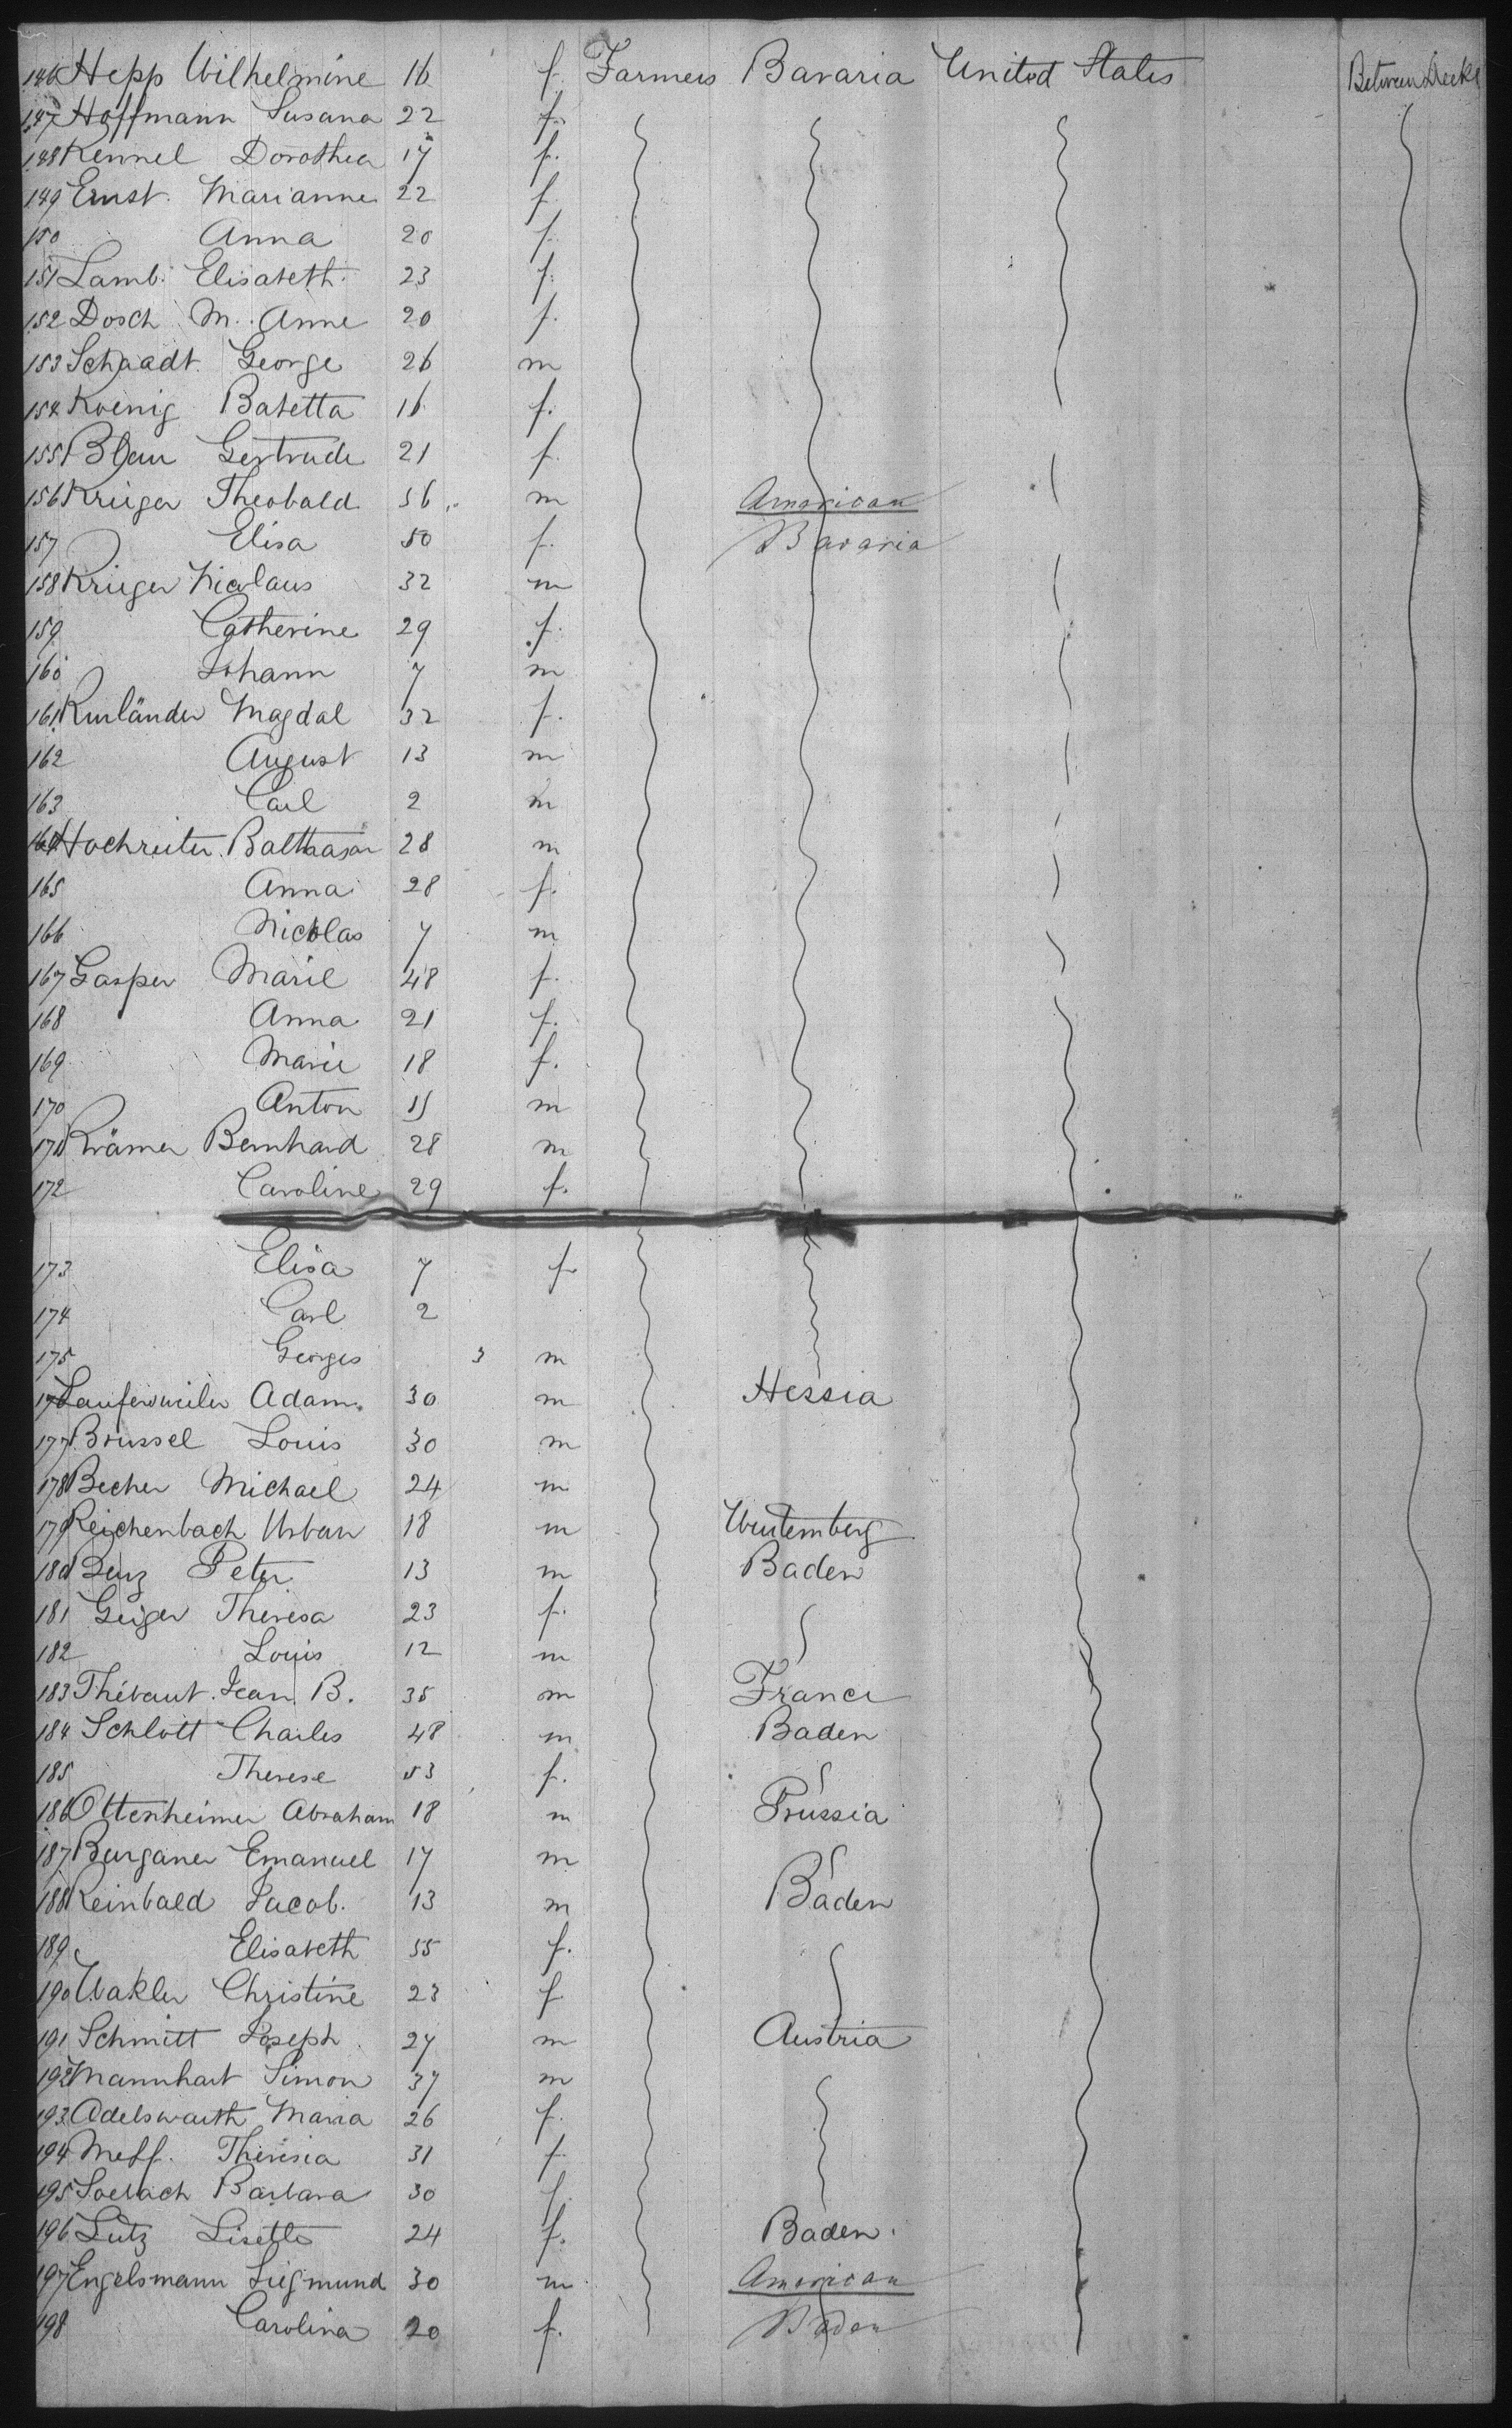 146 Hepp Wilhelmine 16 f. Farmers Bavaria United States Between Decks
147 Hoffmann Susana 22 f.
148 Kennel Dorothea 17 f.
149 Ernst Marianne 22 f.
150 Anna 20 f.
151 Lamb. Elisabeth 23 f.
152 Dosch M. Anne 20 f.
153 Schaadt George 26 m
154 Koenig Babetta 16 f.
155 Blau Gertrude 21 f.
156 Krieger Theobald 56 m American
157 Elisa 50 f. Bavaria
158 Krieger Nicolaus 32 m
159 Catherine 29 f.
160 Johann 7 m
161 Kurländer Magdal 32 f.
162 August 13 m
163 Carl 2 m
164 Hochreiter Balthasar 28 m
165 Anna 28 f.
166 Nicolas 7 m
167 Gasper Marie 48 f.
168 Anna 21 f.
169 Marie 18 f.
170 Anton 15 m
171 Krämer Bernhard 28 m
172 Caroline 29 f.
173 Elisa 7 f
174 Carl 2
175 Georges 3 m
176 Lauferweiler Adam 30 m Hessia
177 Brussel Louis 30 m
178 Becher Michael 24 m
179 Reichenbach Urban 18 m Wurtemberg
180 Benz Peter 13 m Baden
181 Geiger Theresa 23 f.
182 Louis 12 m
183 Thébaut Jean B. 35 m France
184 Schlott Charles 48 m Baden
185 Therese 53 f.
186 Ottenheimer Abraham 18 m Prussia
187 Burganer Emanuel 17 m
188 Reinbald Jacob. 13 m Baden
189 Elisabeth 55 f.
190 Wakler Christine 23 f.
191 Schmitt Joseph 27 m Austria
192 Mannhart Simon 37 m
193 Adelswarth Maria 26 f.
194 Theresia 31 f
195 Barbara 30 f
196 Lutz Lisette 24 f. Baden.
197 Engelsmann Siegmund 30 m American
198 Carolina 20 f. Baden